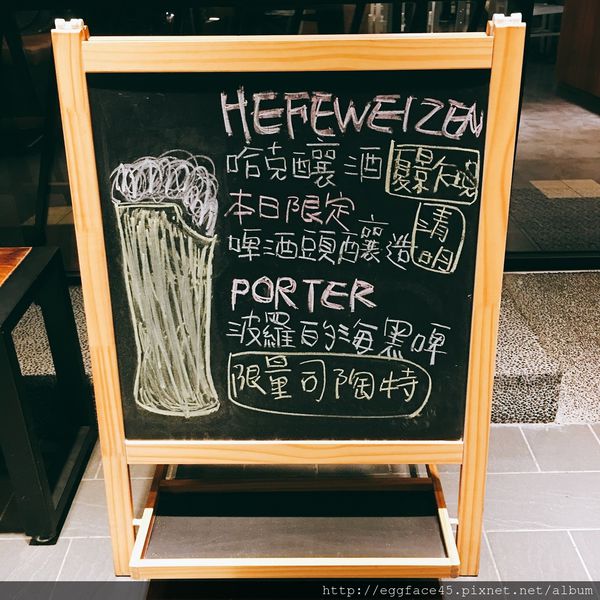 HEFEWEIZEN
哈克釀酒 夏季右現
本日限定
啤酒頭釀造 清明
PORTER
波羅的海黑啤
限量司陶特
http://eggface45.pixnet.net/album